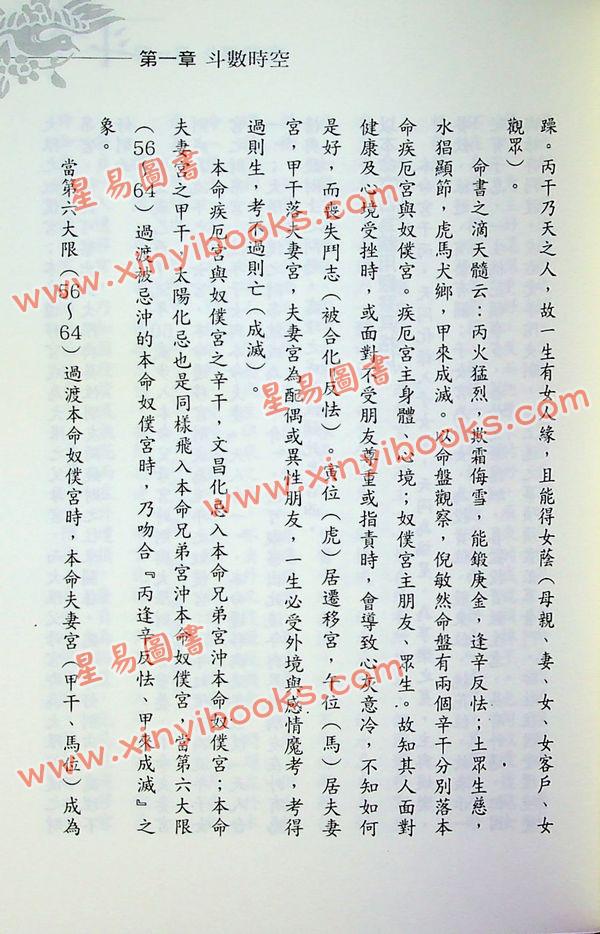 第一章 斗數時空
躁。丙干乃天之人，故一生有女人緣，且能得女蔭（母親、妻、女、女客戶、女
觀眾）。
命書之滴天髓云：丙火猛烈，欺霜侮雪，能鍛庚金，逢辛反怯；土眾生慈，
水猖顯節，虎馬犬鄉，甲來成滅。以命盤觀察，倪敏然命盤有兩個辛干分別落本
命疾厄宮與奴僕宮。疾厄宮主身體、心境；奴僕宮主朋友、眾生。故知其人面對
健康及心境受挫時，或面對不受朋友尊重或指責時，會導致心灰意冷，不知如何
是好，而喪失鬥志（被合化、反怯）。寅位（虎）居遷移宮，午位（馬）居夫妻
宮，甲干落夫妻宮，夫妻宮為配偶或異性朋友，一生必受外境與感情魔考，考得
過則生，考不過則亡（成滅）。
本命疾厄宮與奴僕宮之辛干，文昌化忌入本命兄弟宮沖本命奴僕宮；本命
夫妻宮之甲干，太陽化忌也是同樣飛入本命兄弟宮沖本命奴僕宮，當第六大限
（56～64）過渡被忌沖的本命奴僕宮時，乃吻合『丙逢辛反怯、甲來成滅』之
象。
當第六大限（56～64）過渡本命奴僕宮時，本命夫妻宮（甲干、馬位）成為
星易圖書
www.xinyibooks.com
星易圖書
www.xinyibooks.com
星易圖書
www.xinyibooks.com